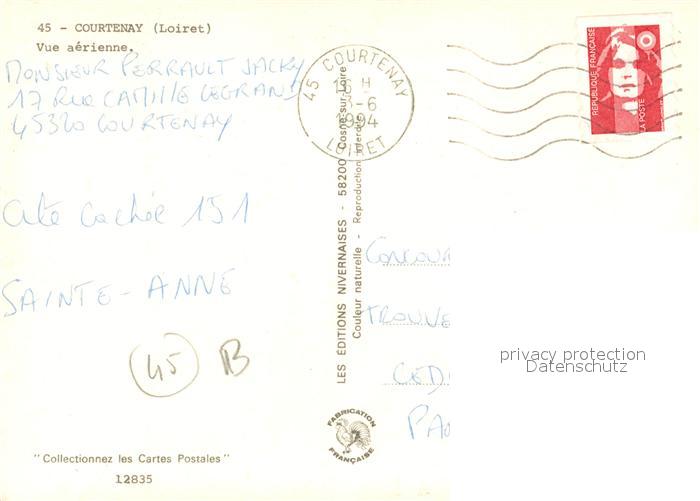 45 - COURTENAY (Loiret)
Vue aérienne.
MONSIEUR PERRAULT JACKY
17 RUE CAMILLE LEGRAND
45320 COURTENAY
Carte cachée 151
SAINTE-ANNE
45 B
"Collectionnez les Cartes Postales"
12835
LES ÉDITIONS NIVERNAISES - 58200 Cosne-sur-Loire
Couleur naturelle - Reproduction interdite
FABRICATION
FRANÇAISE
45 COURTENAY
H
-6
1994
LOIRET
RÉPUBLIQUE FRANÇAISE
LA POSTE
CONCOUR
TROUVE
CED
PA
privacy protection
Datenschutz